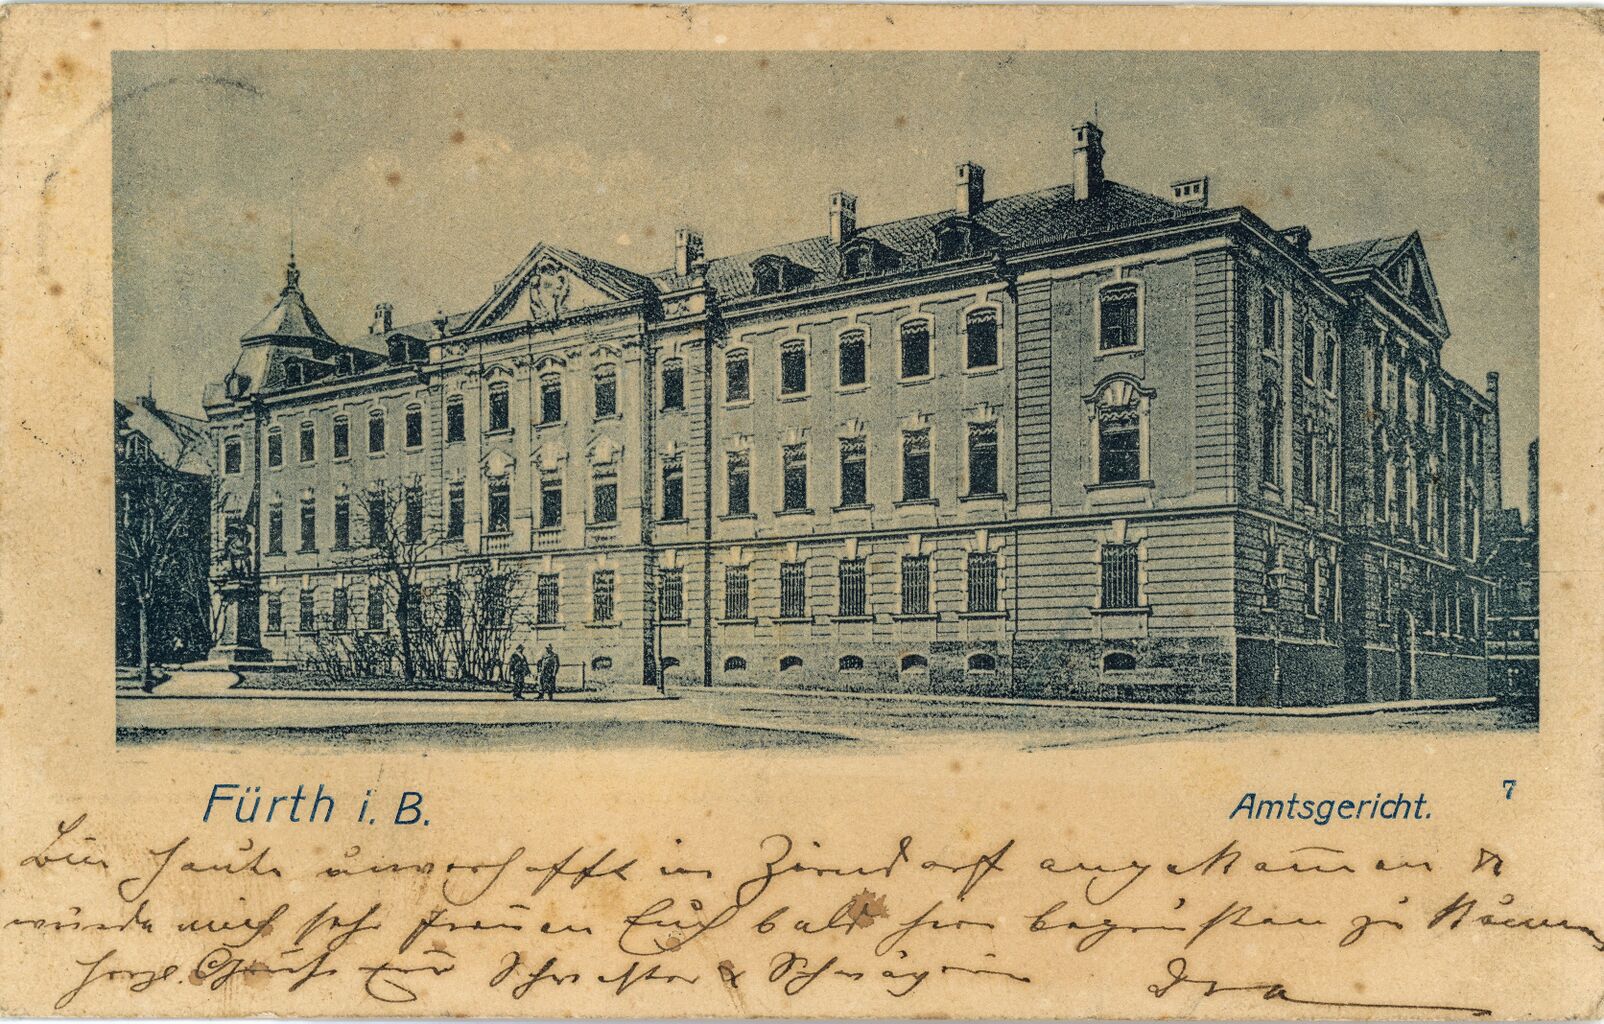 Fürth i. B.
Amtsgericht.
7
Bin heute unverhofft in Zirndorf angekom̅en &
würde mich sehr freuen Euch bald hier begrüßen zu können
herzl. Grüße Eure Schwester & Schwägerin